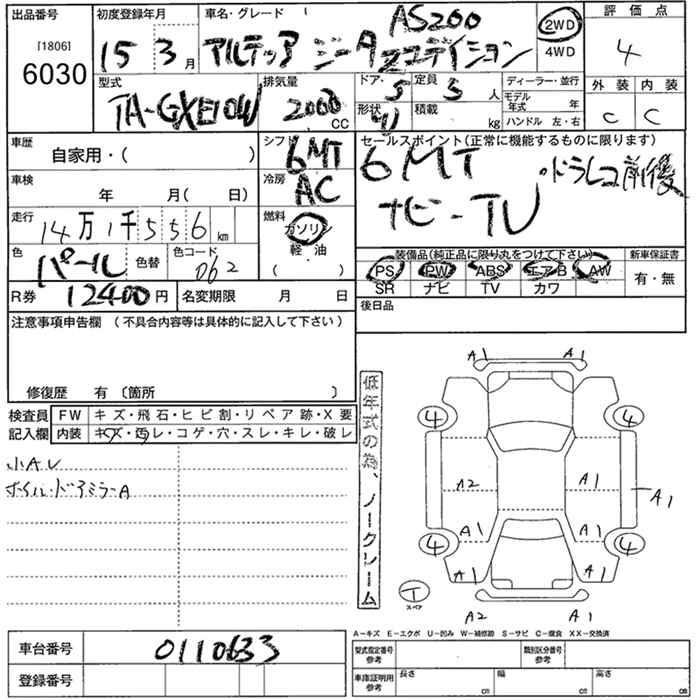 出品番号
[1806]
6030
初度登録年月
15 3月
車名・グレード
AS200
アルテッツァ ジータ Zエディション
2WD
4WD
評価点
4
外装 内装
C C
型式
TA-GXE10W
排気量
2000
CC
ドア・形状
5
W
定員
5人
積載
kg
ディーラー・並行
モデル年式 年
ハンドル 左・右
車歴
自家用・( )
シフト
6MT
セールスポイント(正常に機能するものに限ります)
6MT ・ドラレコ前後
ナビ-TV
車検
年 月( 日)
冷房
AC
走行
14万1千556km
燃料
ガソリン
軽・油
( )
色
パール
色替
色コード
062
装備品(純正品に限り丸をつけて下さい)
PS PW ABS エアB AW
SR ナビ TV カワ
新車保証書
有・無
R券 12400円
名変期限 月 日
後日品
注意事項申告欄 (不具合内容等は具体的に記入して下さい)
修復歴 有〔箇所 〕
検査員記入欄
FW キズ・飛石・ヒビ割・リペア跡・X要
内装 キズ・汚レ・コゲ・穴・スレ・キレ・破レ
小AU
ホイル・ドアミラーA
低年式の為、ノークレーム
A1 A1
4 4
A2 A1
A1
A1 A1
4 4
A1 A1
T
スペア
A2 A1
A-キズ E-エクボ U-凹み W-補修跡 S-サビ C-腐食 XX-交換済
車台番号
0110633
登録番号
型式指定番号
参考
類別区分番号
参考
車庫証明用
参考
長さ cm
幅 cm
高さ cm